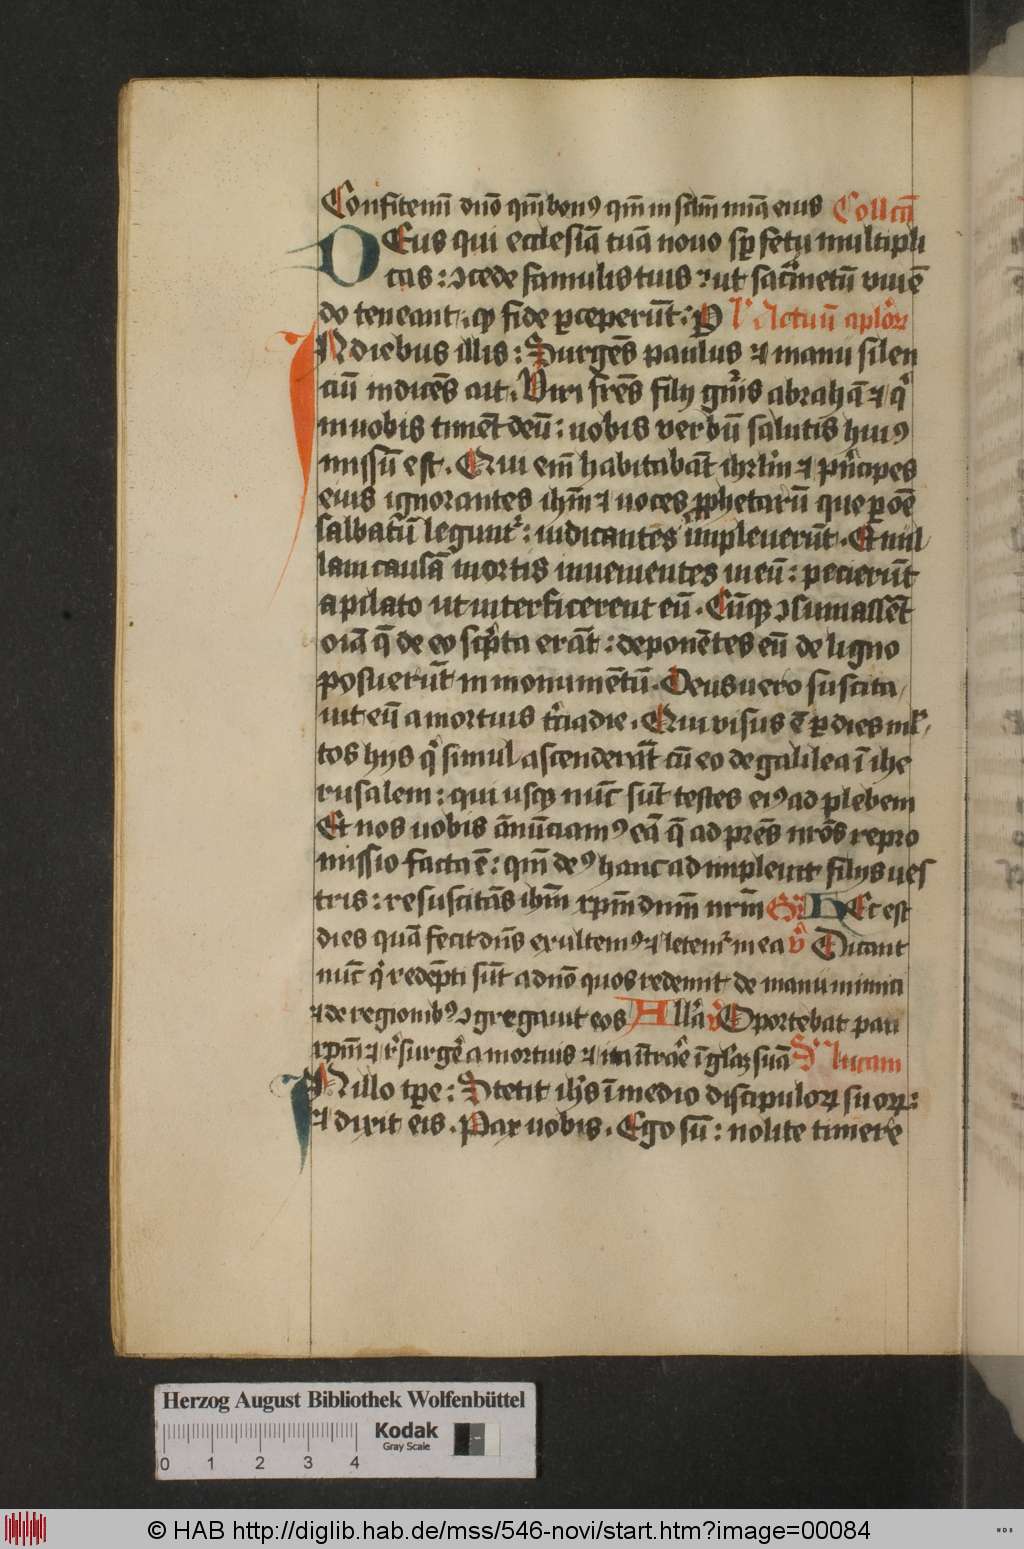 Confitem̄ dn̄o qm̄ bonꝰ qm̄ in sclm̄ mīa eius Coll̄cā
DEus qui ecclesiā tuā nouo sꝑ fetu multipli
cas : ꝯcede famulis tuis : ut sacͣmētū viuē
do teneant . qͥ fide ꝑceperūt : P L̓ Actuū aplōꝝ
IN diebus illis : Surgēs paulus ⁊ manu silen
ciū indicēs ait . Viri frēs filij gn̄is abrahā ⁊ qͥ
in uobis timēt deū : uobis verbū salutis huiꝰ
missū est . Qui em̄ habitabāt ihrlm̄ ⁊ pͥncipes
eius ignorantes ihm̄ ⁊ uoces ꝓphetarū que ꝑ oē
salbatū legunt᷑ : iudicantes impleuerūt . Et nul
lam causā mortis inuenientes in eū : pecierūt
a pilato ut interficerent eū . Cūqꝫ ꝯsumassēt
oīa q̄ de eo scͥpta erāt : deponētes eū de ligno
posuerūt in monumētū . Deus uero suscita
uit eū a mortuis tͥcia die . Qui visus ē ꝑ dies ml̓
tos hijs qͥ simul ascenderāt cū eo de galilea ī ihe
rusalem : qui usqꝫ nūc sūt testes eiꝰ ad plebem
Et nos uobis ānūciamꝰ eā q̄ ad prēs nr̄os repro
missio facta ē : qm̄ deꝰ hanc adimpleuit filijs ues
tris : resuscitās ihm̄ xpm̄ dnm̄ nrm̄ Gͣ HEc est
dies quā fecit dn̄s exultemꝰ ⁊ letem᷑ in ea v̓ Dicant
nūc qͥ redēpti sūt a dn̄o quos redemit de manu inimici
⁊ de regionibꝰ ꝯgregauit eos All̓a v̓ Oportebat pati
xpm̄ ⁊ r̓surgē̓ a mortuis ⁊ ita īt̓rē ī gl̄aꝫ suā S̓ lucam
IN illo tꝑe : Stetit ihs̄ ī medio discipuloꝝ suoꝝ :
⁊ dixit eis . Pax uobis . Ego sū : nolite timere
Herzog August Bibliothek Wolfenbüttel
Kodak
Gray Scale
0 1 2 3 4
© HAB http://diglib.hab.de/mss/546-novi/start.htm?image=00084